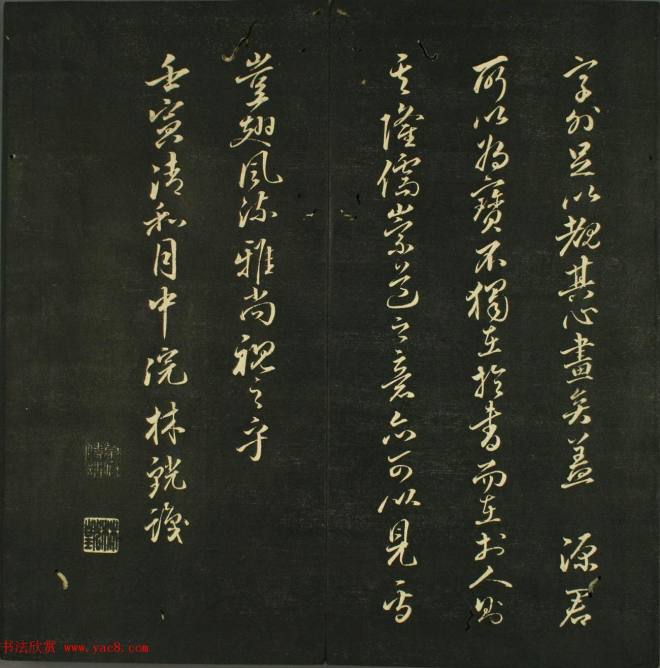 字外足以観其心畫矣蓋　源君
所以為寶不獨在於書而在於人則
其隆儒崇道之意亦可以見焉
豈翅風流雅尚視之乎
壬寅清和月中浣林晄識
书法欣赏 www.yac8.com